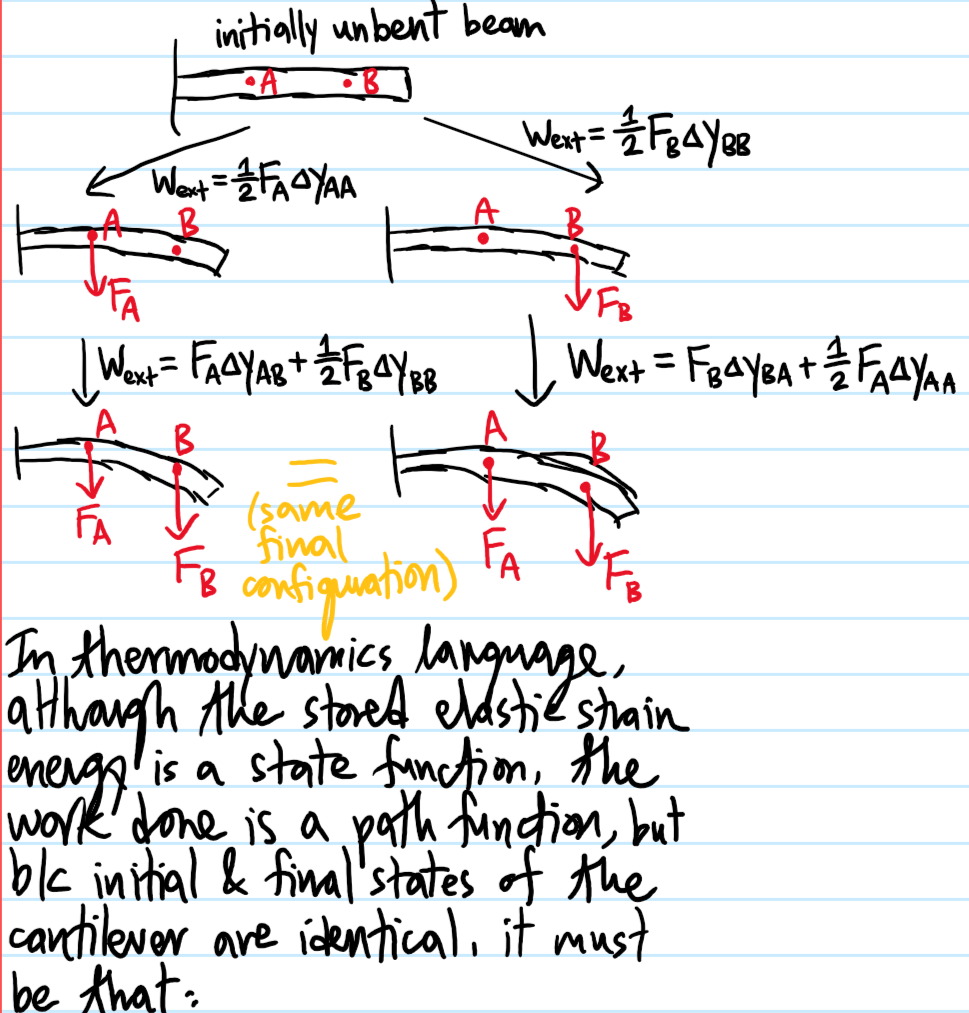 initially unbent beam
A B
Wext = 1/2 F_B Δy_BB
Wext = 1/2 F_A Δy_AA
A B
F_A
A B
F_B
Wext = F_A Δy_AB + 1/2 F_B Δy_BB
Wext = F_B Δy_BA + 1/2 F_A Δy_AA
A B
F_A
F_B
=
(same
final
configuration)
A B
F_A
F_B
In thermodynamics language,
although the stored elastic strain
energy is a state function, the
work done is a path function, but
b/c initial & final states of the
cantilever are identical, it must
be that: